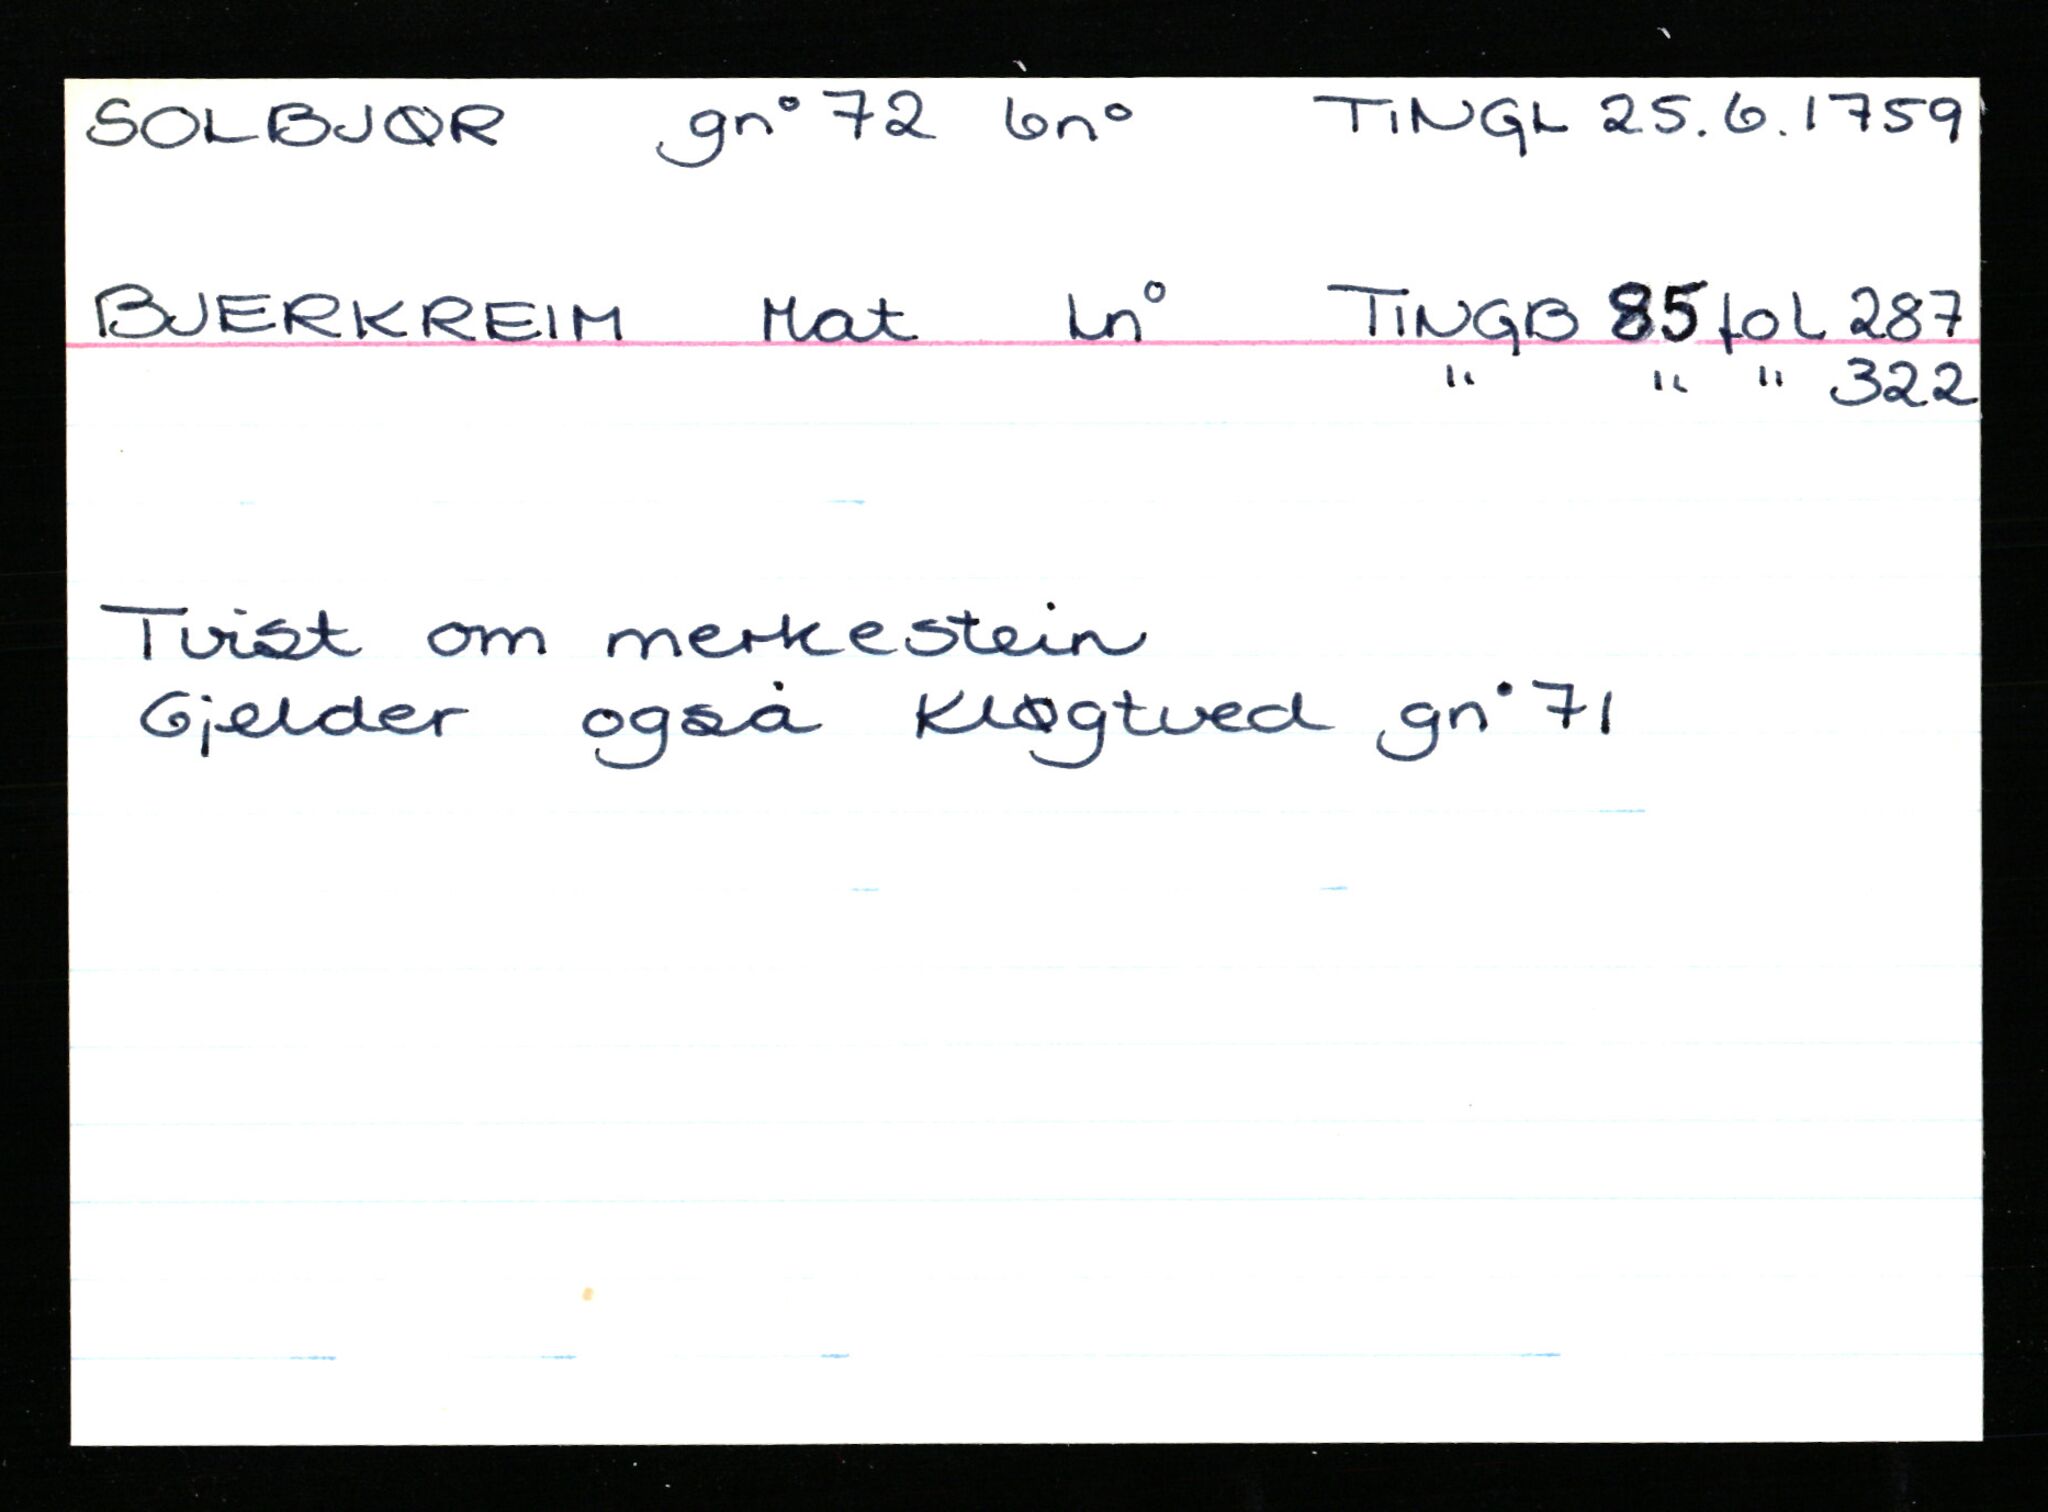 SOLBJØR gn° 72 bn° TINGL 25.6.1759
BJERKREIM Mat Ln° TINGB 85 fol 287
" " " 322
Tvist om merkestein
Gjelder også Kløgtved gn° 71